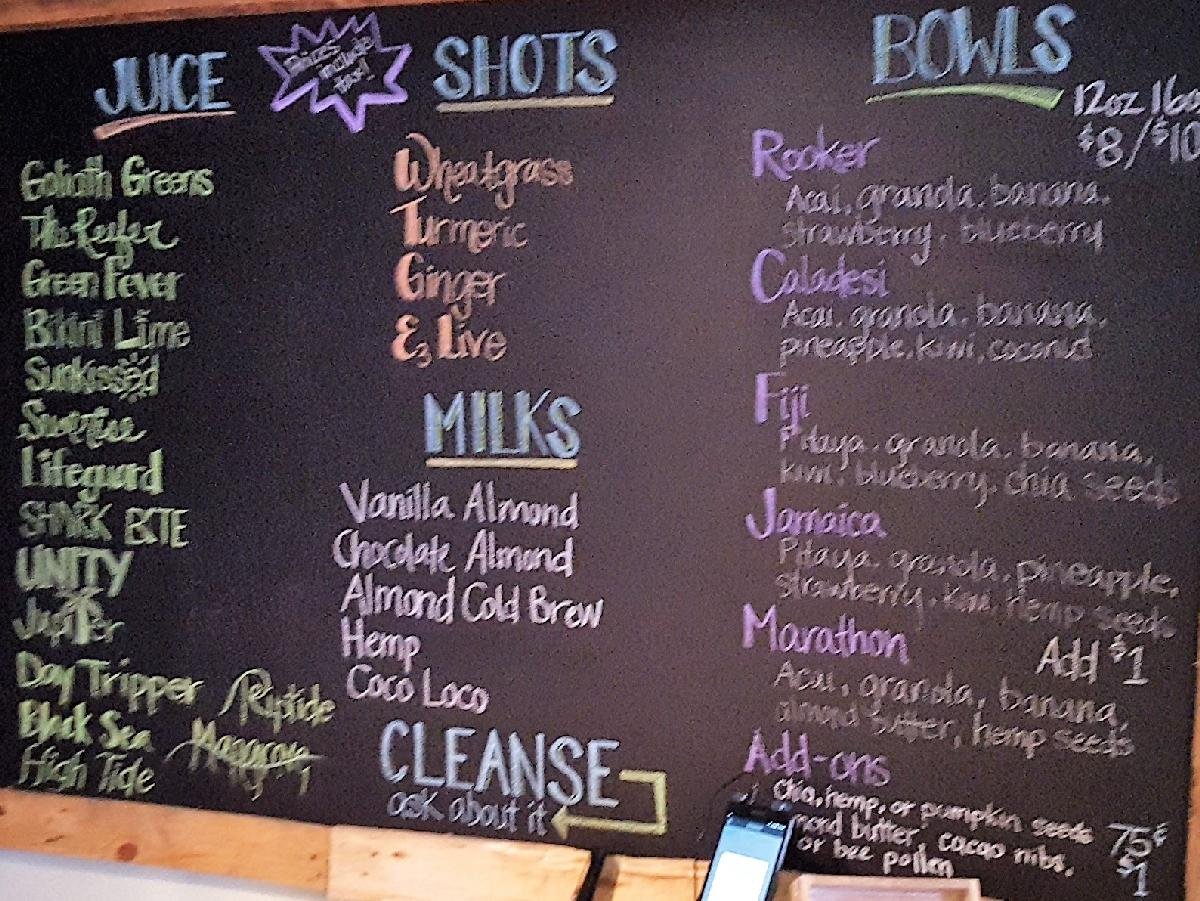 JUICE
Prices include tax!
Goliath Greens
The Reefer
Green Fever
Bikini Lime
Sunkissed
Sunrise
Lifeguard
SHARK BITE
UNITY
Jupiter
Day Tripper / Riptide
Black Sea
High Tide
SHOTS
Wheatgrass
Turmeric
Ginger
E3 Live
MILKS
Vanilla Almond
Chocolate Almond
Almond Cold Brew
Hemp
Coco Loco
CLEANSE
ask about it
BOWLS
12oz 16oz
$8/$10
Rooker
Acai, granola, banana,
strawberry, blueberry
Caladesi
Acai, granola, banana,
pineapple, kiwi, coconut
Fiji
Pitaya, granola, banana,
kiwi, blueberry, chia seeds
Jamaica
Pitaya, granola, pineapple,
strawberry, kiwi, hemp seeds
Marathon Add $1
Acai, granola, banana,
almond butter, hemp seeds
Add-ons
chia, hemp, or pumpkin seeds 75¢
mond butter, cacao nibs,
or bee pollen $1